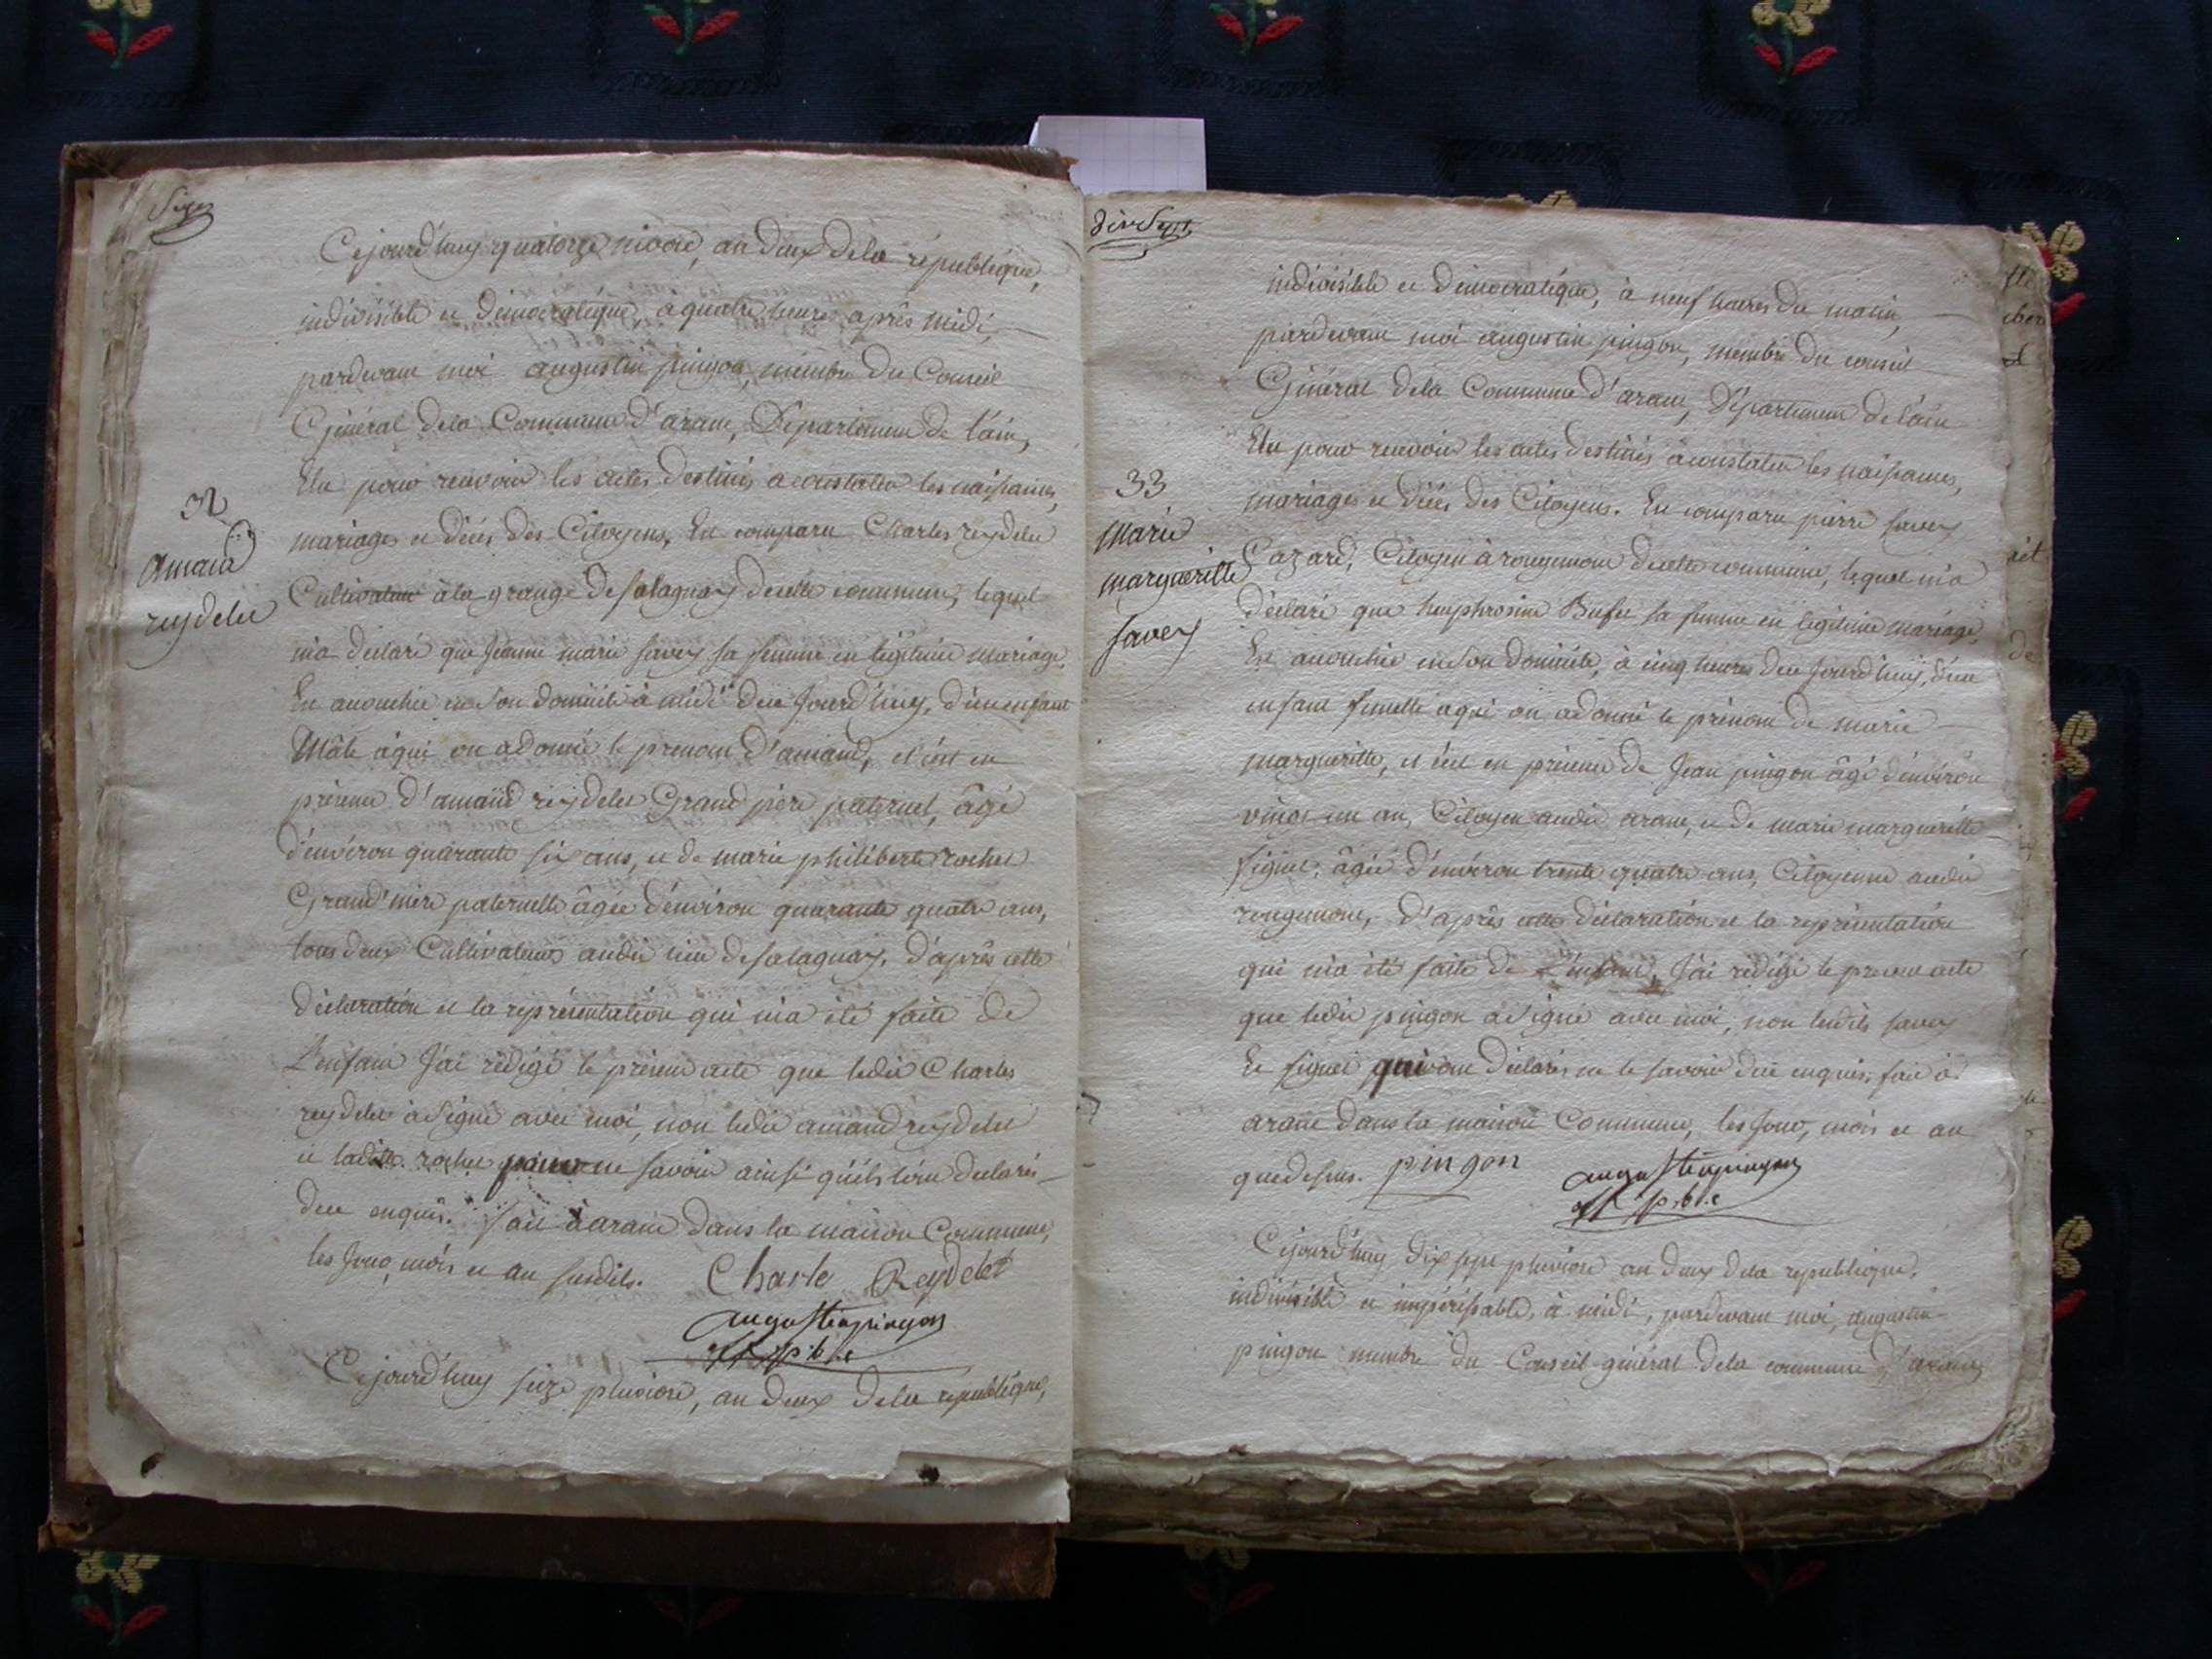 Seize
Cejourd'huy quatorze nivose, an deux de la république,
indivisible et démocratique, a quatre heures après midi,
pardevant moi augustin pingon, membre du Conseil
Général de la Commune d'aranc, Département de l'ain,
Elu pour recevoir les actes destinés a constater les naissances,
mariages et décés des Citoyens, Est comparu Charles reydelet
32
amand
reydelet
Cultivateur à la grange de salaguay de cette commune, lequel
m'a déclaré que jeanne marie savey sa femme en légitime mariage,
Est accouchée en son domicile à midi de ce jourd'huy, d'un enfant
Mâle à qui on a donné le prenom d'amand, et c'est en
présence d'amand reydelet Grand père paternel, âgé
d'environ quarante six ans, et de marie philiberte rochet
Grand'mère paternelle âgée d'environ quarante quatre ans,
tous deux Cultivateurs audit lieu de salaguay. d'après cette
déclaration et la représentation qui m'a été faite de
L'enfant j'ai rédigé le présent acte que ledit Charles
reydelet à signé avec moi, non ledit amand reydelet
et ladite rochet pour ne savoir ainsi qu'ils l'ont déclarés
de ce enquis. fait à aranc dans la maison Commune,
les jour, mois et an susdits. Charle Reydelet
augustin pingon
off p.b.c
Cejourd'huy seize pluviose, an deux de la république,
dix Sept
indivisible et démocratique, à neuf heures du matin,
pardevant moi augustin pingon, membre du conseil
Général de la Commune d'aranc, Département de l'ain
Elu pour recevoir les actes destinés à constater les naissances,
mariages et décés des Citoyens. Est comparu pierre savey
33
marie
marguerille
savey
Cazard, Citoyen à rougemont de cette commune, lequel m'a
déclaré que heuphrosine Buffet sa femme en légitime mariage,
Est accouchée en son domicile, à cinq heures de ce jourd'huy, d'un
enfant femelle a qui on a donné le prénom de marie
marguerille, et c'est en présence de Jean pingon âgé d'environ
vingt un an, Citoyen audit aranc, et de marie marguerille
figuet, âgée d'environ trente quatre ans, Citoyenne audit
rougemont, d'après cette déclaration et la représentation
qui m'a été faite de L'enfant, j'ai rédigé le present acte
que ledit pingon a signé avec moi, non lesdits savey
Et figuet qui ont déclarés ne le savoir de ce enquis, fait à
aranc dans la maison Commune, les jour, mois et an
que dessus. pingon augustin pingon
off p.b.c
Cejourd'huy dix sept pluviose an deux de la republique,
indivisible et impérissable, à midi, pardevant moi, augustin
pingon membre du Conseil général de la commune d'aranc